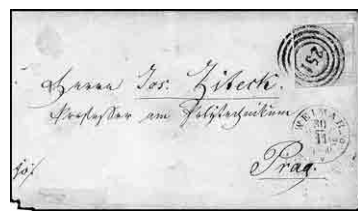 251
Herrn Jos. Zíteck.
Professor am Polytechnikum
WEIMAR
30
11
Prag.